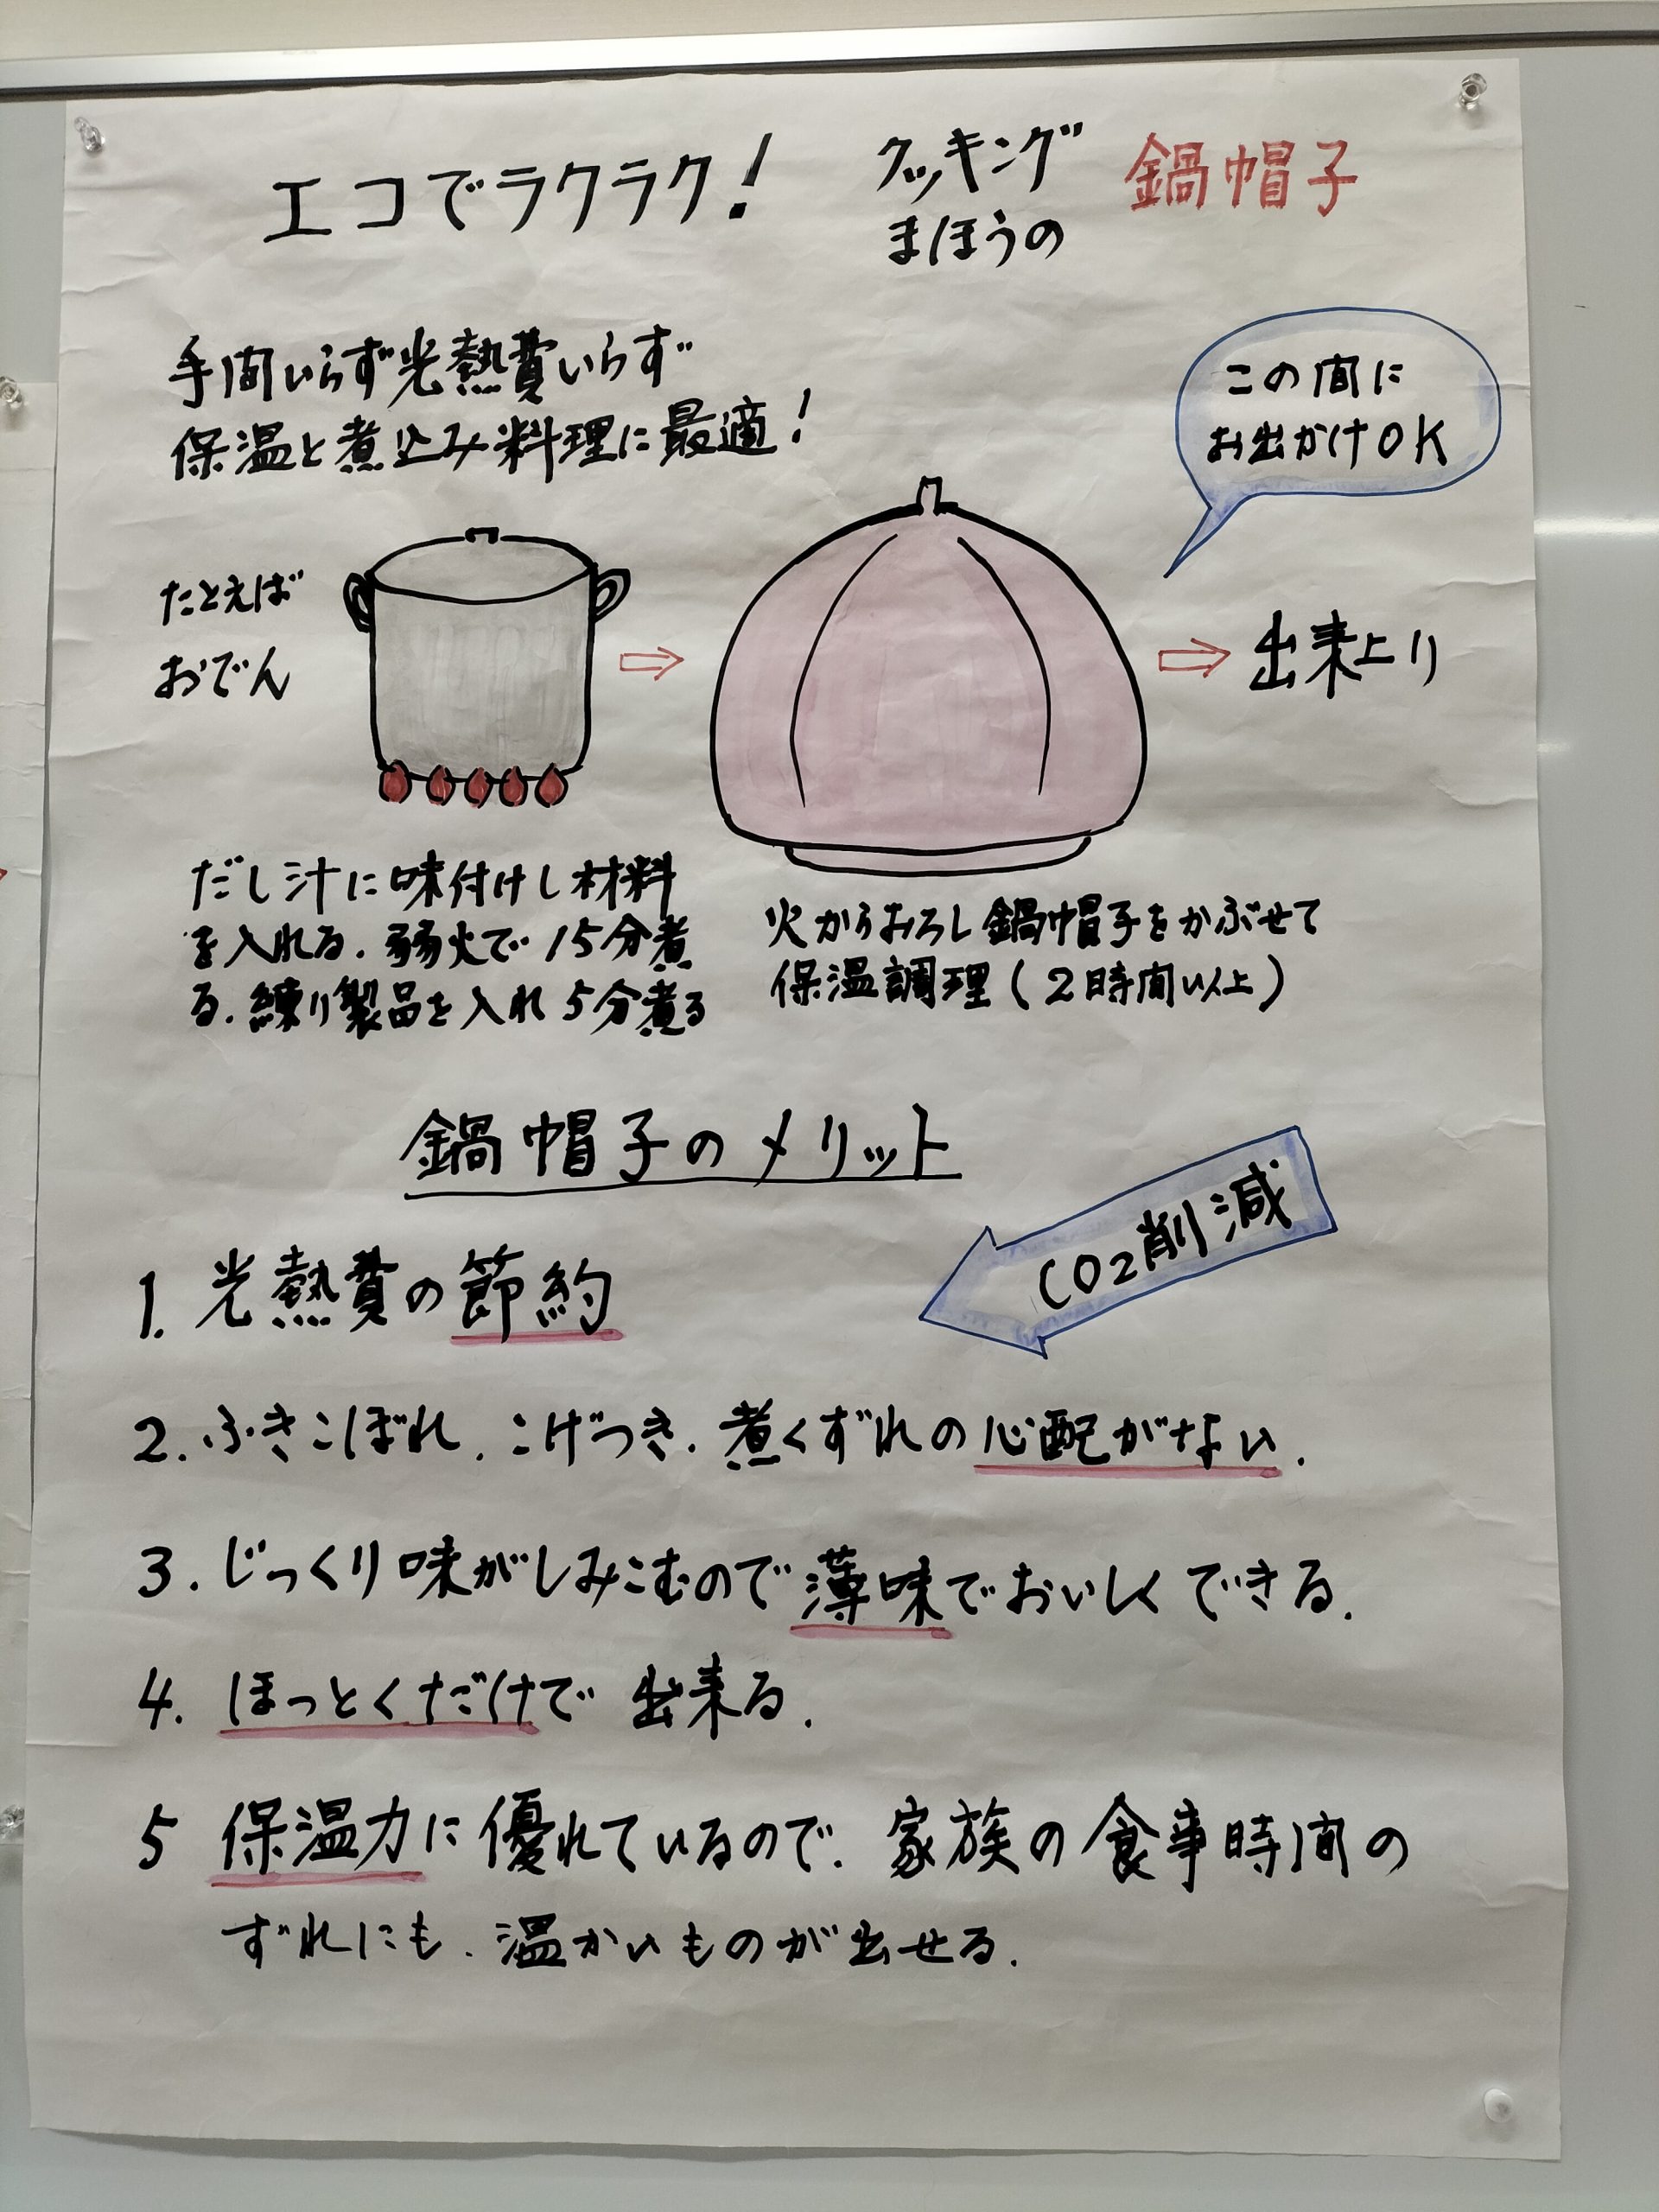 エコでラクラク!
クッキング
まほうの
鍋帽子
手間いらず光熱費いらず
保温と煮込み料理に最適!
この間に
お出かけOK
たとえば
おでん
出来上り
だし汁に味付けし材料
を入れる.弱火で15分煮
る.練り製品を入れ5分煮る
火からおろし鍋帽子をかぶせて
保温調理(2時間以上)
鍋帽子のメリット
CO2削減
1.光熱費の節約
2.ふきこぼれ.こげつき.煮くずれの心配がない.
3.じっくり味がしみこむので薄味でおいしくできる.
4.ほっとくだけで出来る.
5 保温力に優れているので.家族の食事時間の
ずれにも.温かいものが出せる.